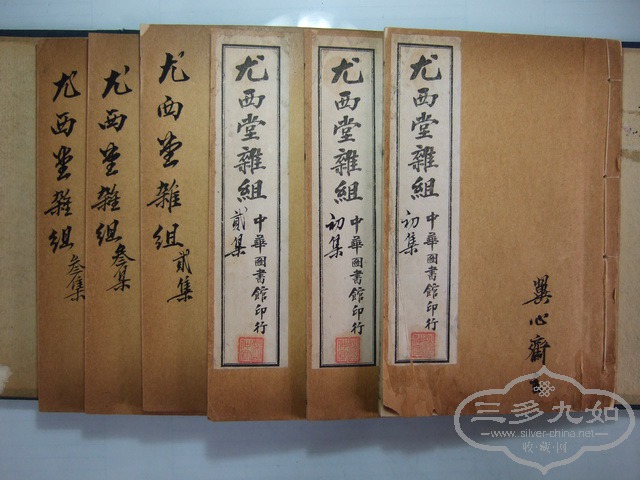 尤西堂雜組
初集
中華圖書館印行
巽心齋
尤西堂雜組
初集
中華圖書館印行
尤西堂雜組
貳集
中華圖書館印行
尤西堂雜組
貳集
尤西堂雜組
叁集
尤西堂雜組
叁集
三多九如
www.silver-china.net
收·藏·网